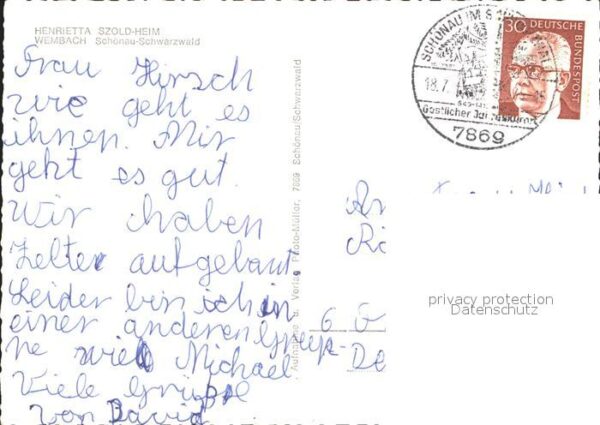 HENRIETTA SZOLD-HEIM
WEMBACH Schönau-Schwarzwald
Frau Hirsch
wie geht es
ihnen. Mir
geht es gut.
Wir haben
Zelter aufgebaut
Leider bin ich in
einer anderen Grup-
pe wie Michael
Viele Grüße
von David
Aufnahme u. Verlag Photo-Müller, 7869 Schönau/Schwarzwald
SCHÖNAU IM
18.7.
7869
30 DEUTSCHE BUNDESPOST
An
6 G
privacy protection
Datenschutz